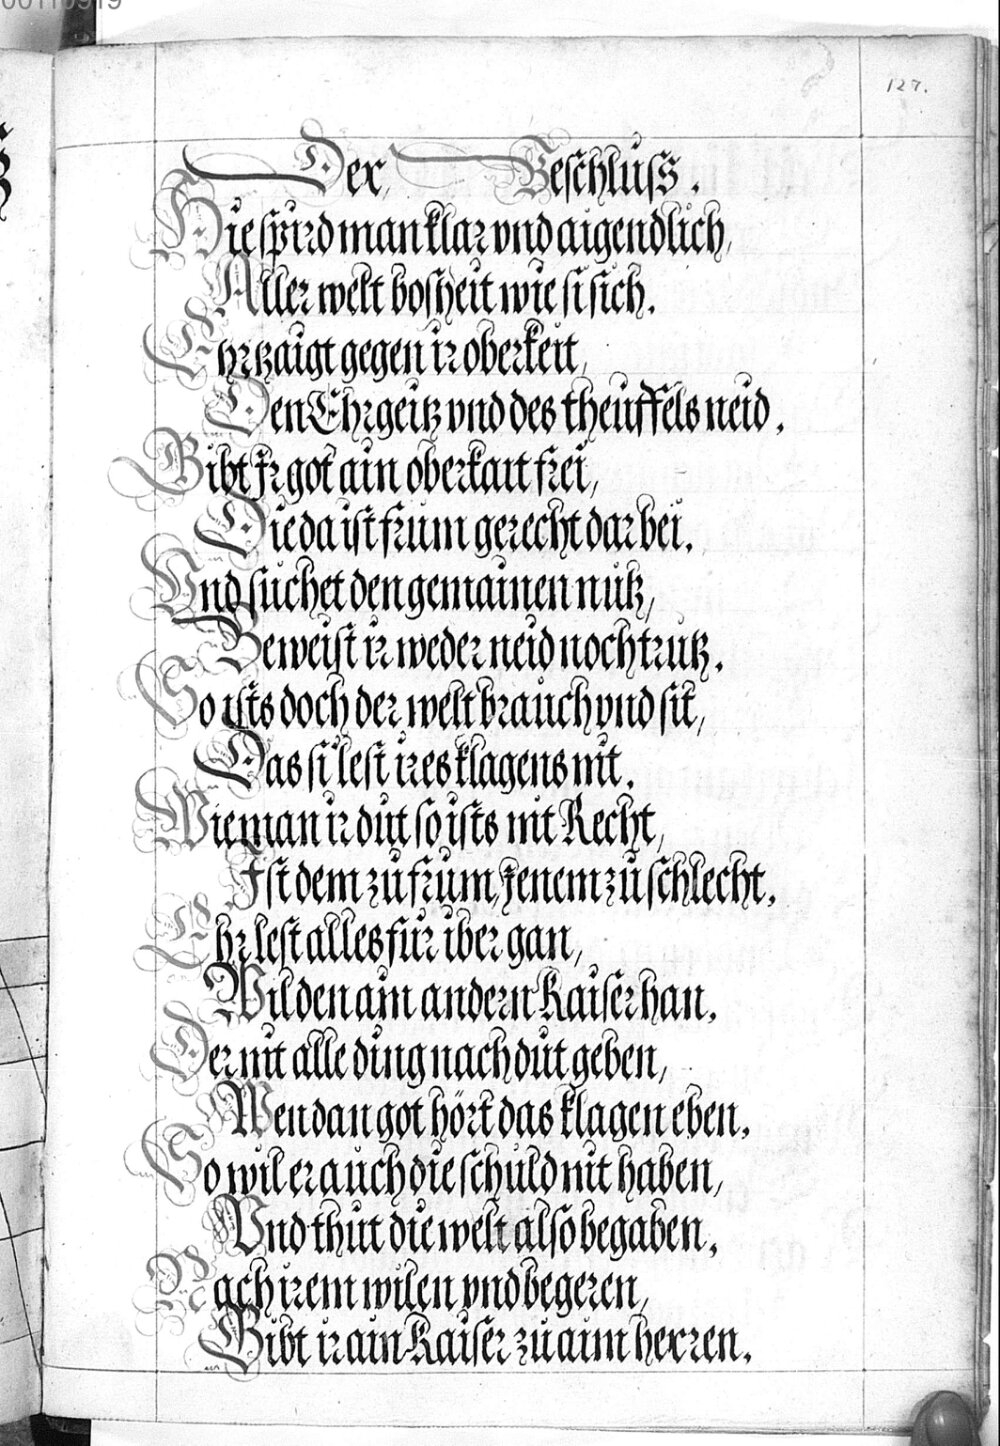 00110919
127.
Der Beschluss.
Hie spird man klar vnd aigendlich,
Aller welt bosheit wie si sich.
Ehrtzaigt gegen ir oberkeit,
Den Ehrgeitz vnd des theuffels neid.
Gibt Ir got ain oberkait frei,
Die da ist frum gerecht dar bei.
Vnd suchet den gemainen nutz,
Beweist ir weder neid noch trutz.
So ists doch der welt brauch vnd sit,
Das si lest ires klagens nit.
Wie man ir dut so ists nit Recht,
Ist dem zu frum, Jenem zu schlecht.
Ehr lest alles für iber gan,
Wil den ain andern Kaiser han.
Der nit alle ding nach dut geben,
Wen dan got hört das klagen eben.
So wil er auch die schuld nit haben,
Vnd thut die welt also begaben.
Nach irem wilen vnd begeren,
Gibt ir ain Kaiser zu aim herren.